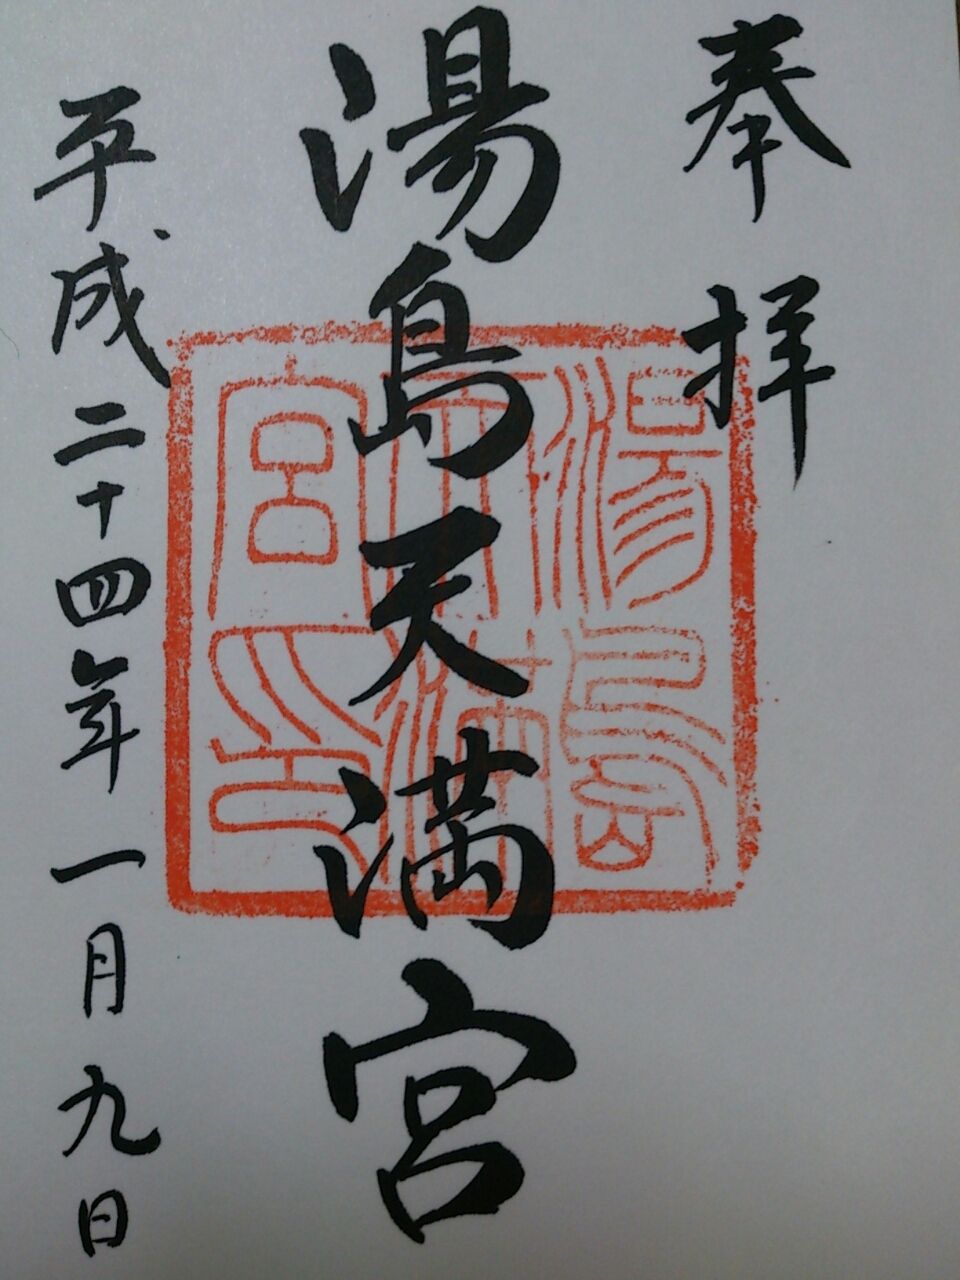 奉拝
湯島天満宮
平成二十四年一月九日
湯島
天満
宮印